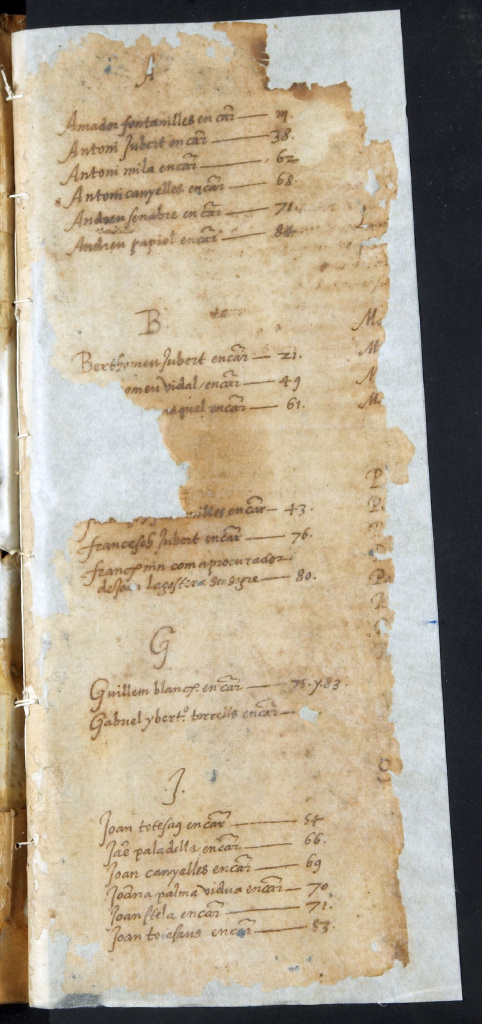 A
Amador fontanilles en cār — 
Antoni Jubert en cār — 38.
Antoni mila en cār — 62
Antoni canyelles en cār — 68
Andreu senabre en cār — 71.
Andreu papiol en cār —
B
Berthomeu Jubert en cār — 21.
omeu vidal en cār — 49
iquel en cār — 61.
M
M
M
illes en cār — 43.
francesch Jubert en cār — 76.
nin com a procurador
de — 80.
P
P.
P.
G
Guillem en cār — 75. y. 83.
Gabriel y bert.o torrells en cār —
J.
Joan en cār —
paladella en cār — 66.
Joan canyelles en cār — 69
Joana palma vidua en cār — 70
Joan en cār — 71.
Joan en cār — 83.